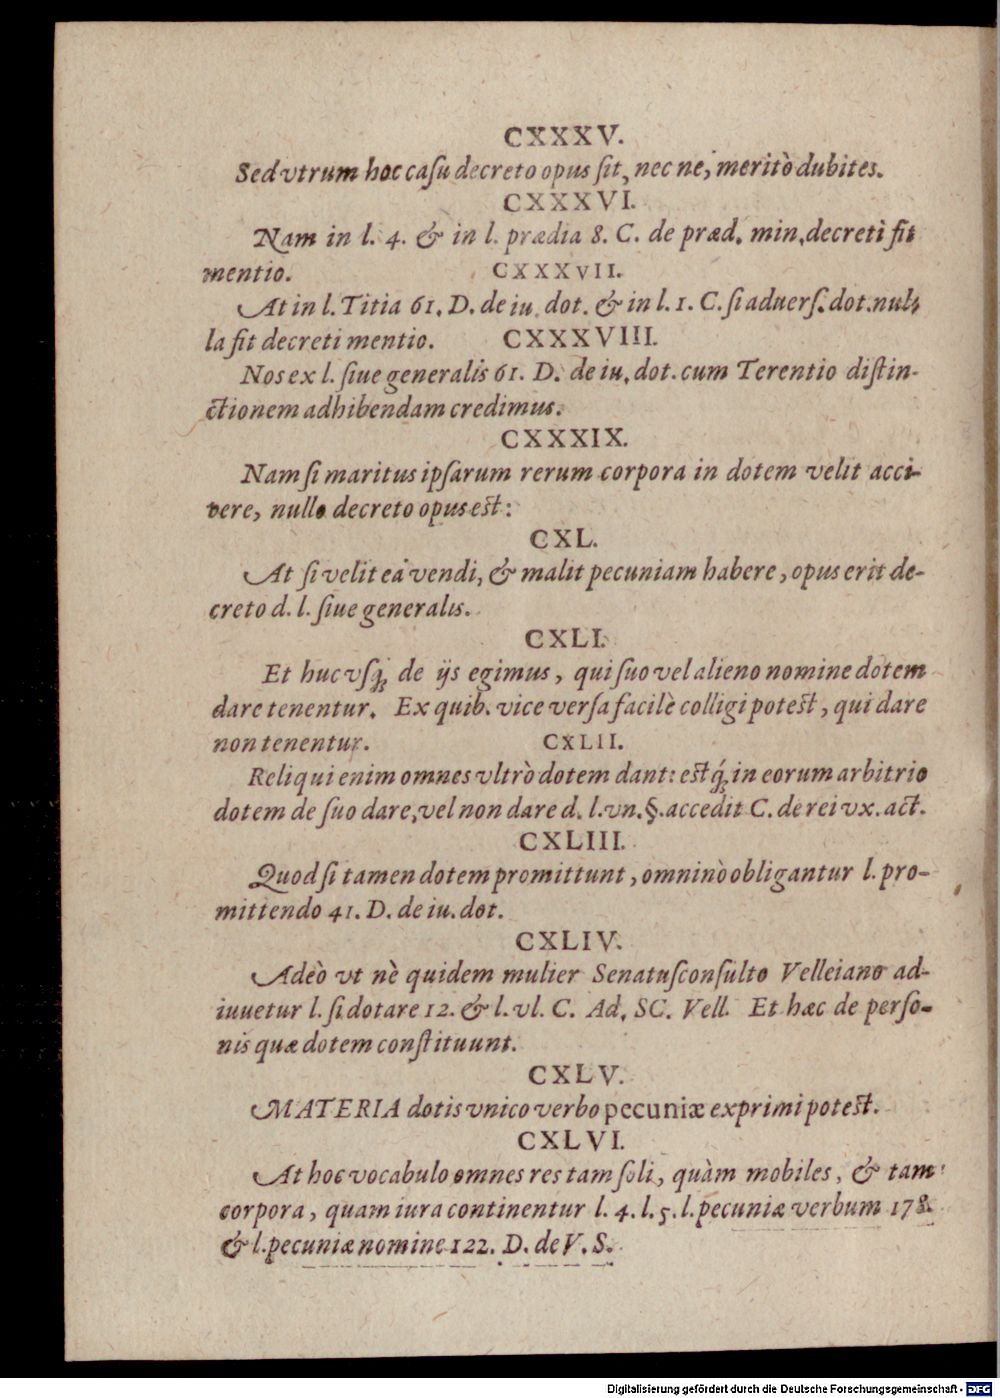 CXXXV.
Sed vtrum hoc caſu decreto opus ſit, nec ne, meritò dubites.
CXXXVI.
Nam in l. 4. & in l. prædia 8. C. de præd. min. decreti fit
mentio. CXXXVII.
At in l. Titia 61. D. de iu. dot. & in l. 1. C. ſi aduerſ. dot. nul-
la fit decreti mentio. CXXXVIII.
Nos ex l. ſiue generalis 61. D. de iu. dot. cum Terentio diſtin-
ctionem adhibendam credimus.
CXXXIX.
Nam ſi maritus ipſarum rerum corpora in dotem velit acci-
pere, nullo decreto opus est:
CXL.
At ſi velit ea vendi, & malit pecuniam habere, opus erit de-
creto d. l. ſiue generalis.
CXLI.
Et huc vſq́; de ijs egimus, qui ſuo vel alieno nomine dotem
dare tenentur. Ex quib. vice verſa facilè colligi potest, qui dare
non tenentur. CXLII.
Reliqui enim omnes vltrò dotem dant: estq́; in eorum arbitrio
dotem de ſuo dare, vel non dare d. l. vn. §. accedit C. de rei vx. act.
CXLIII.
Quod ſi tamen dotem promittunt, omninò obligantur l. pro-
mittendo 41. D. de iu. dot.
CXLIV.
Adeò vt nè quidem mulier Senatuſconſulto Velleiano ad-
iuuetur l. ſi dotare 12. & l. vl. C. Ad. SC. Vell. Et hæc de perſo-
nis quæ dotem conſtituunt.
CXLV.
MATERIA dotis vnico verbo pecuniæ exprimi potest.
CXLVI.
At hoc vocabulo omnes res tam ſoli, quàm mobiles, & tam
corpora, quam iura continentur l. 4. l. 5. l. pecuniæ verbum 178.
& l. pecuniæ nomine 122. D. de V. S.
Digitalisierung gefördert durch die Deutsche Forschungsgemeinschaft - DFG